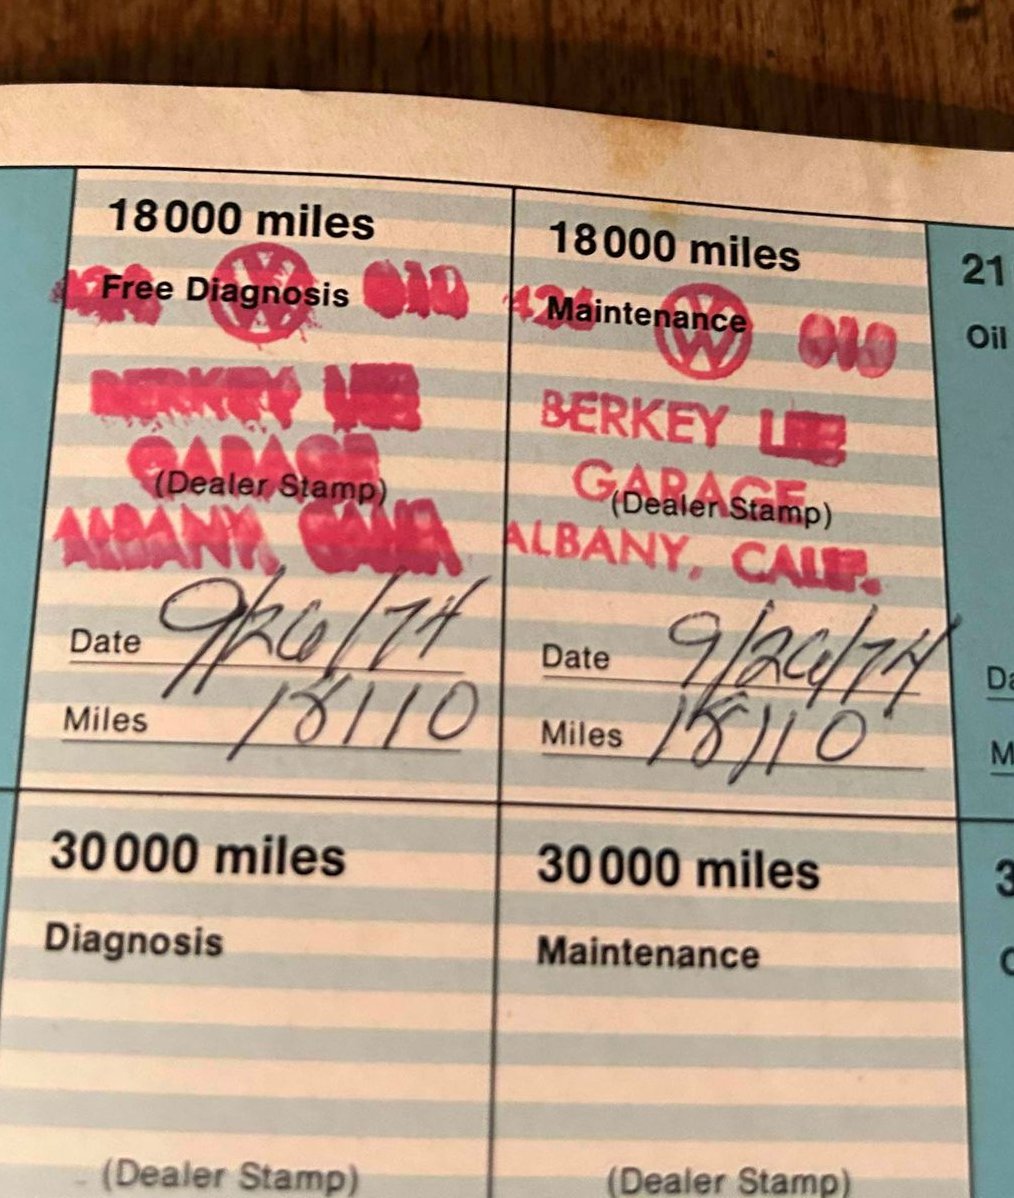 18000 miles
Free Diagnosis
010
BERKEY LEE
GARAGE
(Dealer Stamp)
ALBANY,
Date 9/26/74
Miles 18110
18000 miles
Maintenance
426 010
BERKEY LEE
GARAGE
(Dealer Stamp)
ALBANY, CALIF.
Date 9/26/74
Miles 18110
21
Oil
30000 miles
Diagnosis
(Dealer Stamp)
30000 miles
Maintenance
(Dealer Stamp)